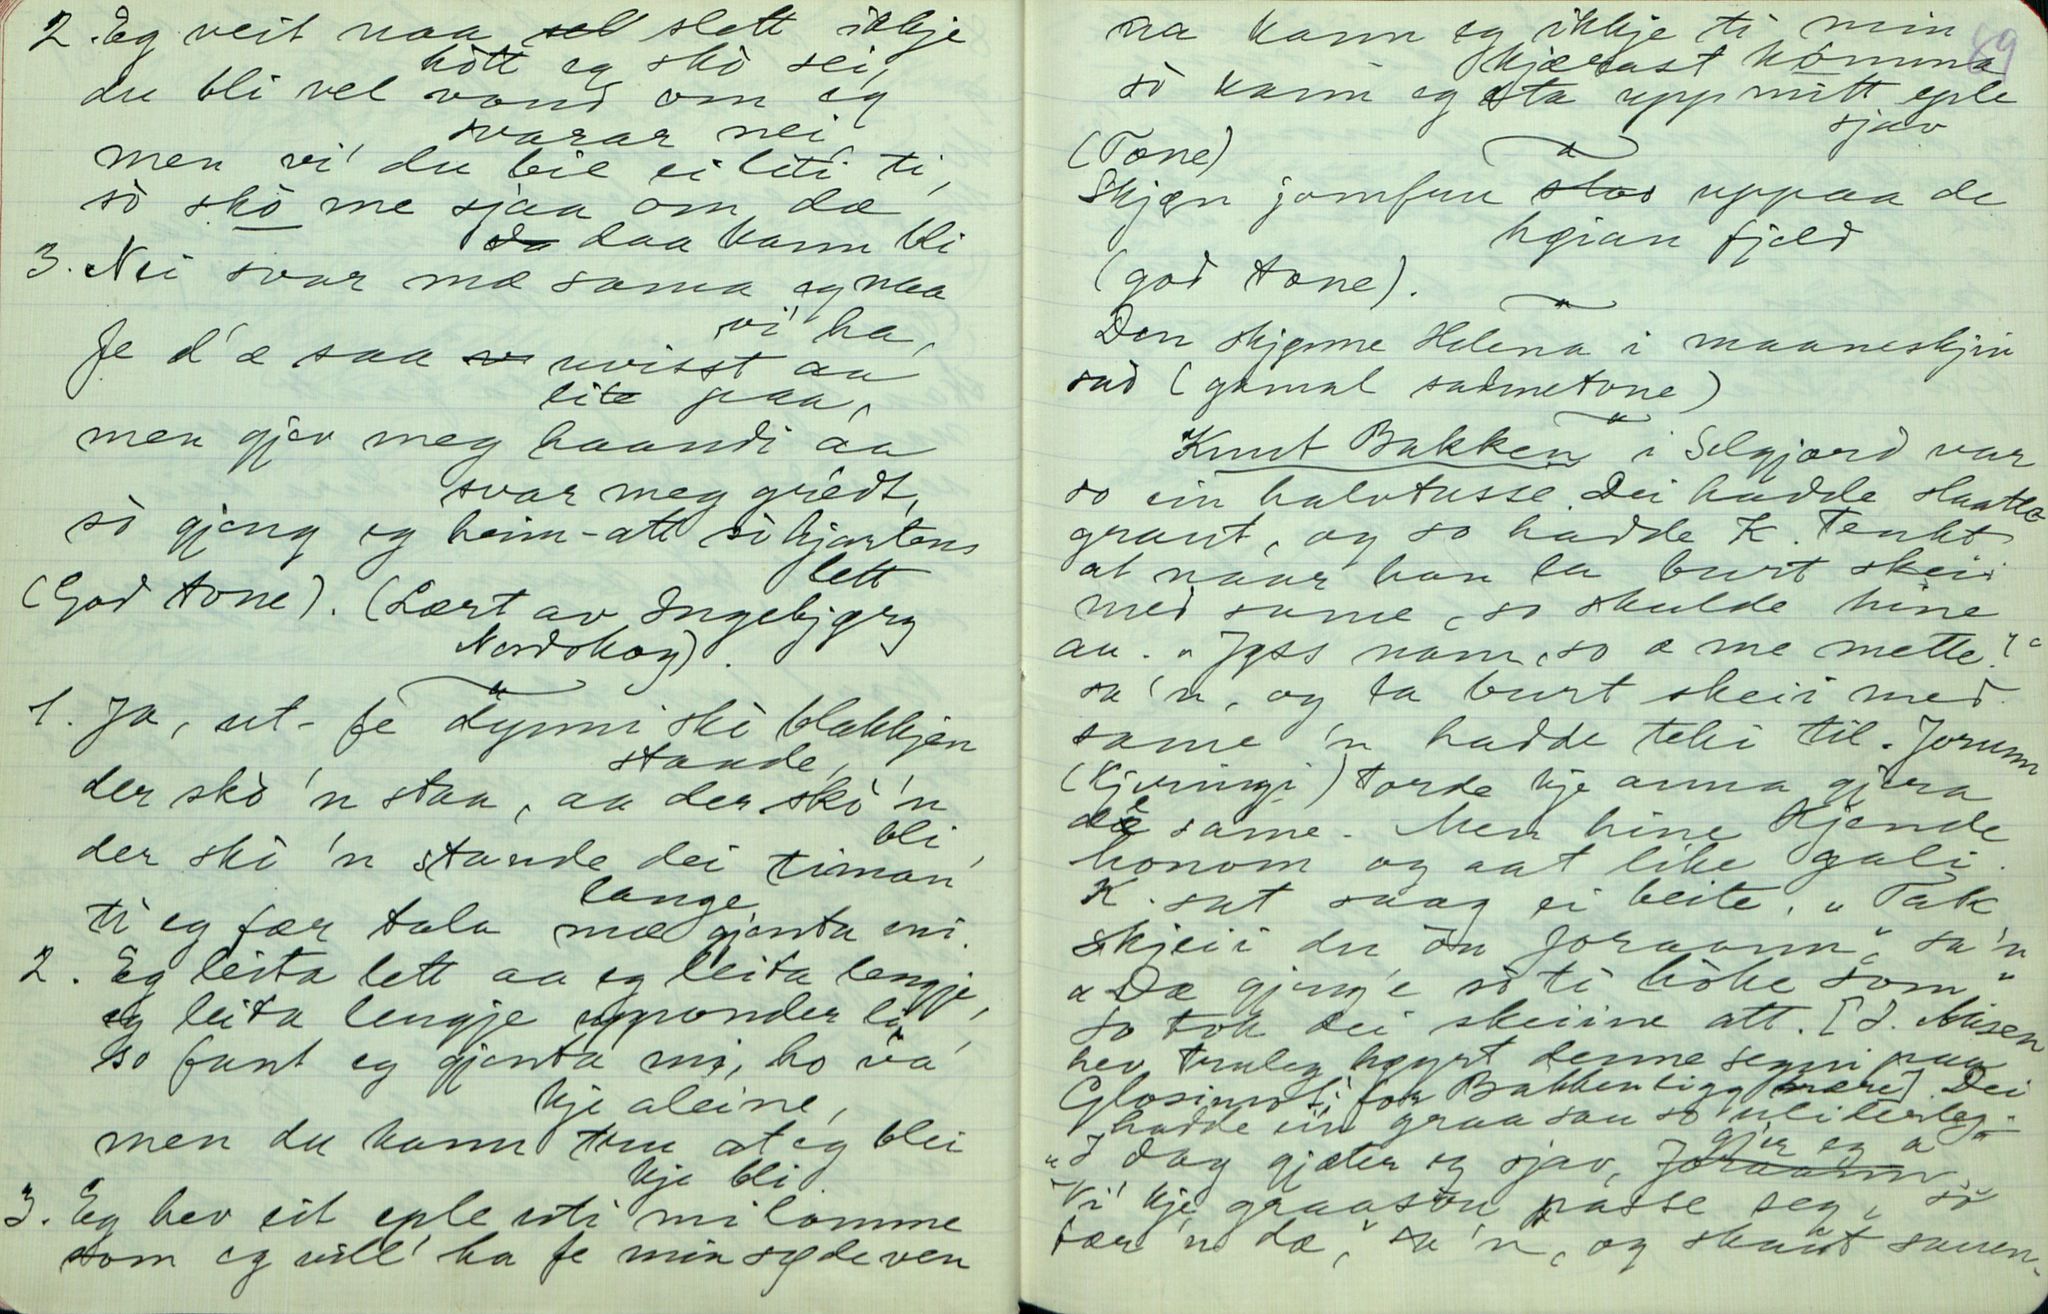 2. Eg veit naa sel slett ikkje
hòtt eg skò sei,
du bli vel vond om eg
svarar nei
men vi' du bie ei liti ti,
sò skò me sjaa om dæ
da daa kann bli
3. Nei svar mæ sama eg naa
vi' ha,
fe d'æ saa so uvisst aa
lite paa,
men gjev meg haandi aa
svar meg greidt,
sò gjeng eg heim-att sò hjartens
lett
(God tone). (Lært av Ingebjørg
Nordskog).
1. Ja, ut-fe dynni skò blakkjen
stande,
der skò 'n staa, aa der skò 'n
bli,
der skò 'n stande dei timan
lange
ti eg fær tala mæ gjenta mi.
2. Eg leita lett aa eg leita lengje,
eg leita lengje upponder li,
so fant eg gjenta mi, ho va'
kje aleine,
men du kann tru at eg blei
kje bli
3. Eg hev eit eple uti mi lomme
som eg vill' ha fe min søde ven
na kann eg ikkje ti min
kjærast kòmma
sò kann eg eta upp mitt eple
sjav
(Tone)
Skjøn jomfru stod uppaa de
høian fjeld
(god tone).
Den skjønne Helena i maaneskjin
sad (gamal sadmetone)
Knut Bakken i Selgjord var
so ein halvtusse. Dei hadde slaatte-
graut, og so hadde K. tenkt
at naar han la burt skeii
med same, so skulde hine
au. „Jøss namn, so æ me mette!"
sa 'n, og la burt skeii med
same 'n hadde teki til. Jorunn
(Kjeringi) torde kje anna gjera
dè same. Men hine kjende
honom og aat like gali.
K. sat saag ei beite. „Tak
skjeii du òu Joraann", sa 'n
„Dæ gjeng'e sò ti hòke som"
So tok dei skeiine att. [J. Aasen
hev truleg høyrt denne segni paa
Glosimot for Bakken ligg nære]. Dei
hadde ein graa sau so uliderleg.
„I dag gjæter eg sjav, Joraann
gjer eg a
Vi' kje graasòu passe seg, sò
tær 'n dæ," sa 'n, og skaut sauen.
69